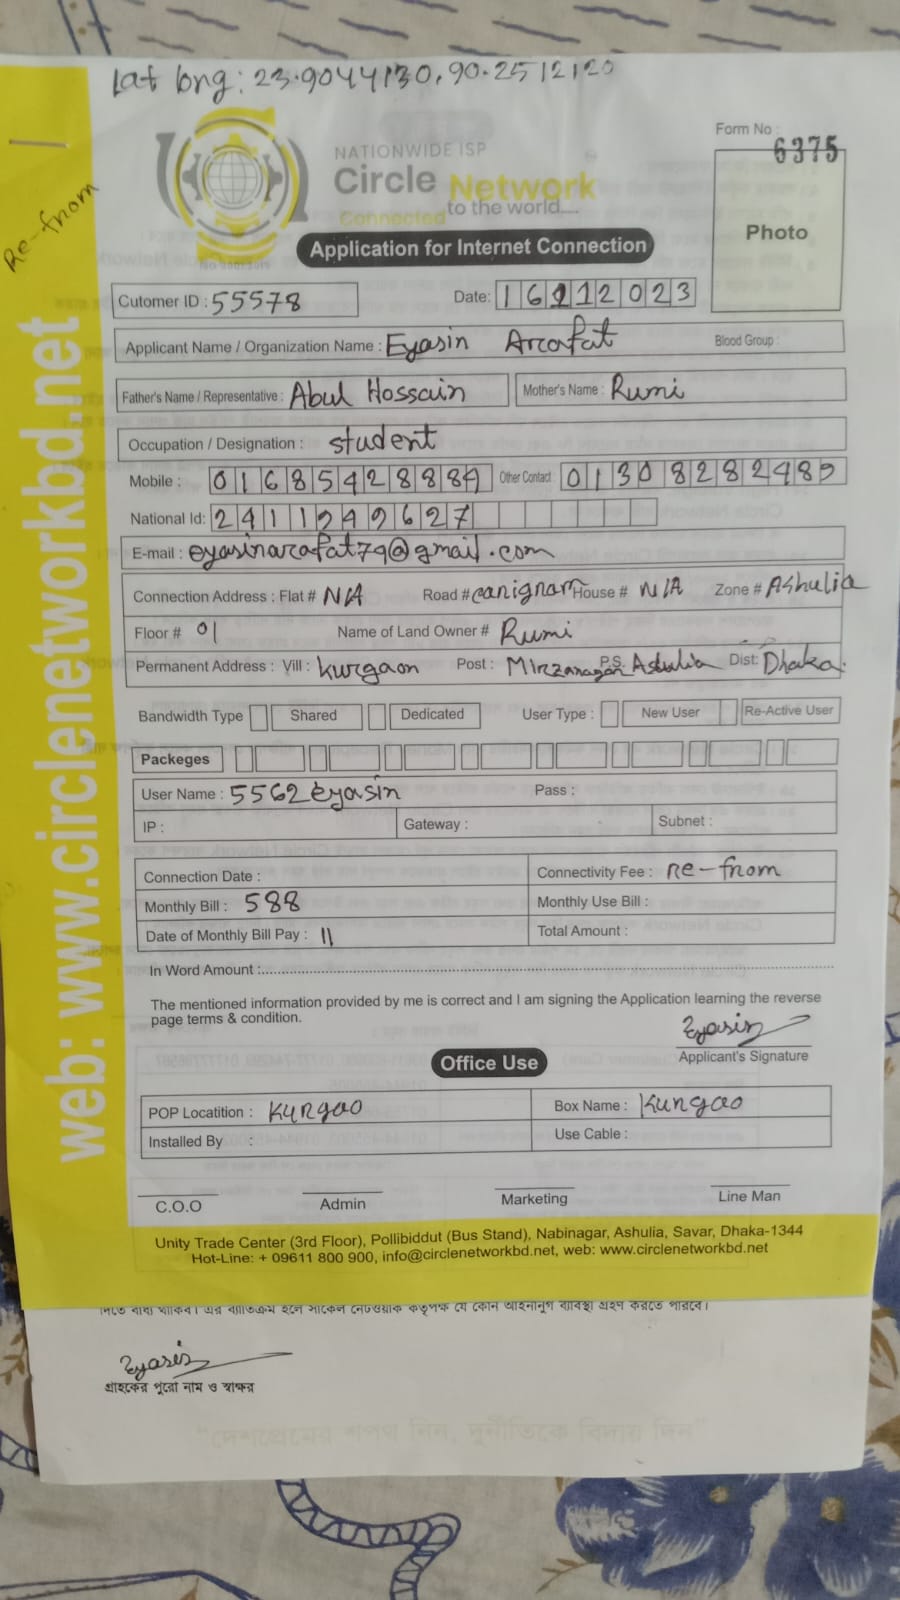 Lat long: 23.9044130, 90.2512120
Re-from
NATIONWIDE ISP
Circle Network
Connected to the world....
Form No :
6375
Photo
Application for Internet Connection
Cutomer ID : 55578 Date: 16122023
Applicant Name / Organization Name : Eyasin Arafat Blood Group :
Father's Name / Representative : Abul Hossain Mother's Name : Rumi
Occupation / Designation : student
Mobile : 01685428884 Other Contact : 01308282489
National Id: 2411249627
E-mail : eyasinarafat79@gmail.com
Connection Address : Flat # N/A Road # canignam House # N/A Zone # Ashulia
Floor # 01 Name of Land Owner # Rumi
Permanent Address : Vill : Kurgaon Post : Mirzanagar P.S. Ashulia Dist: Dhaka.
Bandwidth Type Shared Dedicated User Type : New User Re-Active User
Packeges
User Name : 5562eyasin Pass :
IP : Gateway : Subnet :
Connection Date : Connectivity Fee : Re-from
Monthly Bill : 588 Monthly Use Bill :
Date of Monthly Bill Pay : 11 Total Amount :
In Word Amount :
The mentioned information provided by me is correct and I am signing the Application learning the reverse
page terms & condition.
Eyasin
Applicant's Signature
Office Use
POP Locatition : Kurgao Box Name : Kurgao
Installed By : Use Cable :
C.O.O Admin Marketing Line Man
Unity Trade Center (3rd Floor), Pollibiddut (Bus Stand), Nabinagar, Ashulia, Savar, Dhaka-1344
Hot-Line: + 09611 800 900, info@circlenetworkbd.net, web: www.circlenetworkbd.net
web: www.circlenetworkbd.net
দিতে বাধ্য থাকিব। এর ব্যতিক্রম হলে সার্কেল নেটওয়ার্ক কর্তৃপক্ষ যে কোন আইনানুগ ব্যবস্থা গ্রহণ করতে পারবে।
Eyasin
গ্রাহকের পুরো নাম ও স্বাক্ষর
“দেশপ্রেমের শপথ নিন, দুর্নীতিকে বিদায় দিন”